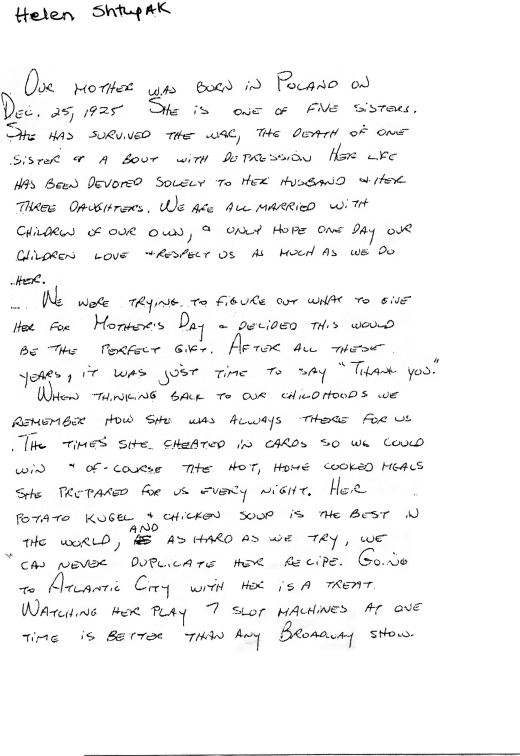 Helen Shtupak
Our mother was born in Poland on
Dec. 25, 1925 She is one of five sisters.
She has survived the war, the death of one
sister & a bout with depression Her life
has been devoted solely to her husband & her
three daughters. We are all married with
children of our own, & only hope one day our
children love & respect us as much as we do
her.
We were trying to figure out what to give
her for Mother's Day & decided this would
be the perfect gift. After all these
years, it was just time to say "Thank you."
When thinking back to our childhoods we
remember how she was always there for us
. The times she cheated in cards so we could
win & of-course the hot, home cooked meals
she prepared for us every night. Her
potato kugel & chicken soup is the best in
the world, and as hard as we try, we
can never duplicate her recipe. Going
to Atlantic City with her is a treat.
Watching her play 7 slot machines at one
time is better than any Broadway show.